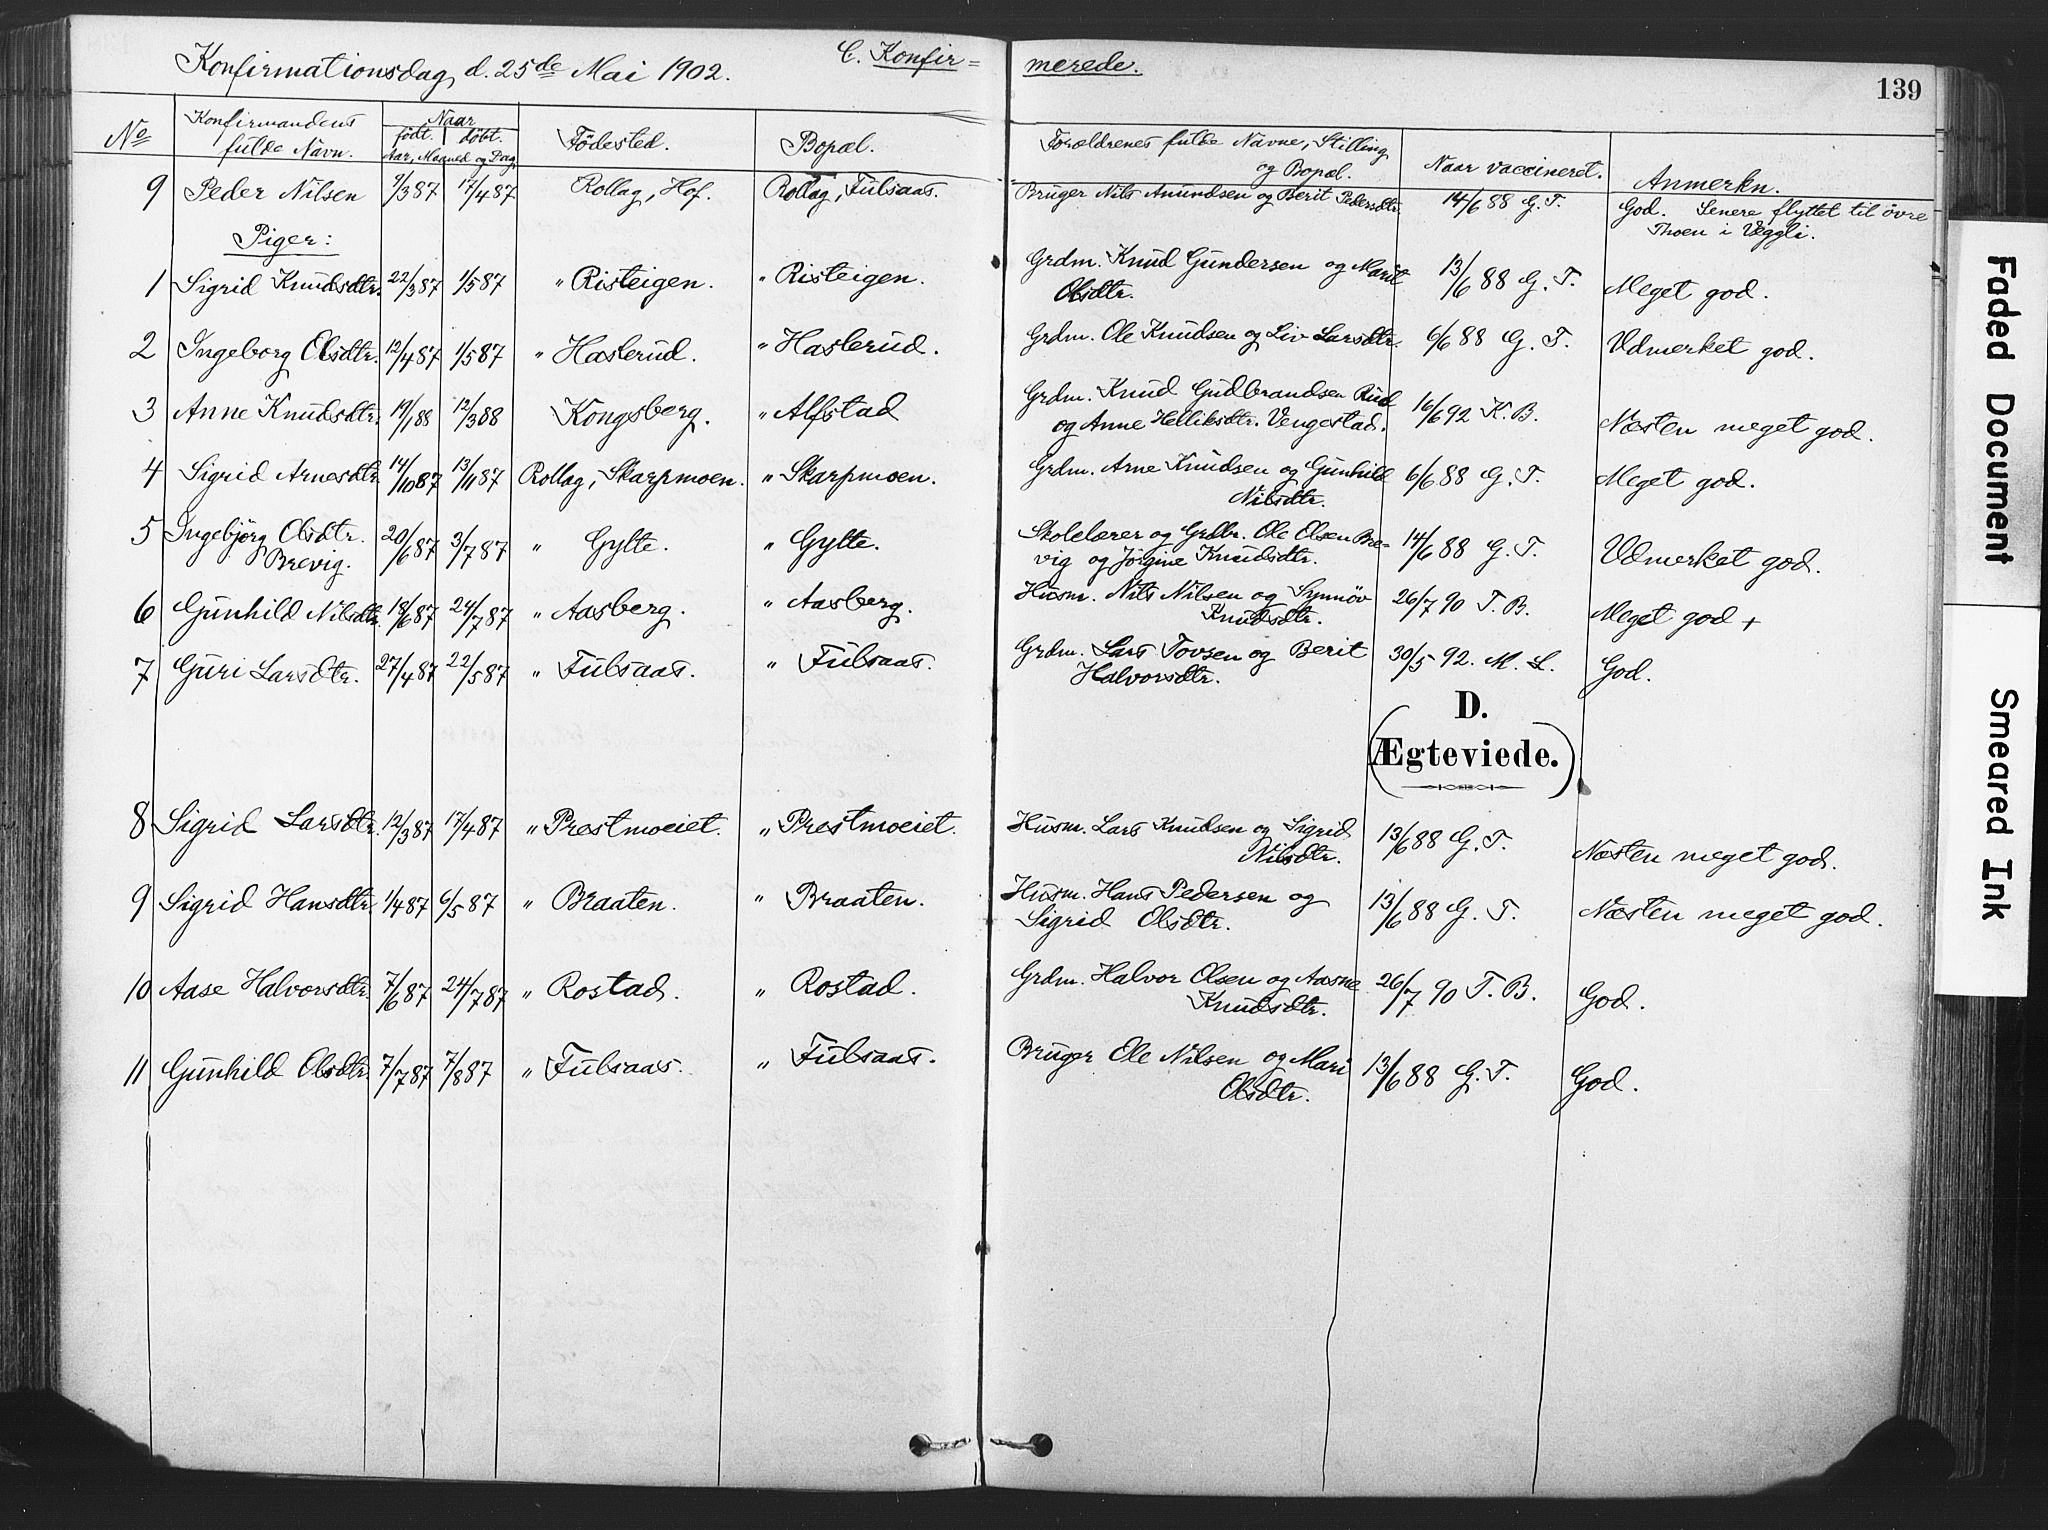 Konfirmationsdag d. 25de Mai 1902.
C. Konfir=
merede.
139
No
Konfirmandens fulde Navn.
Naar
født. døbt.
Aar, Maaned og Dag
Födested.
Bopæl.
Forældrenes fulde Navne, Stilling og Bopæl.
Naar vaccineret.
Anmerkn.
9 Peder Nilsen 9/3 87 17/4 87 Rollag, Hof. Rollag, Fulsaas. Bruger Nils Amundsen og Berit Pedersdtr. 14/6 88 G. T. God. Senere flyttet til övre
Thoen i Veggli.
Piger:
1 Sigrid Knudsdtr. 22/3 87 1/5 87 " Risteigen. " Risteigen. Grdm. Knud Gundersen og Marit 13/6 88 G. T. Meget god.
Olsdtr.
2 Ingeborg Olsdtr. 12/4 87 1/5 87 " Haslerud. " Haslerud. Grdm. Ole Knudsen og Liv Larsdtr. 6/6 88 G. T. Udmerket god.
3 Anne Knudsdtr. 19/1 88 12/3 88 Kongsberg. " Alfstad Grdm. Knud Gudbrandsen Rud 16/6 92 K. B. Næsten meget god.
og Anne Helliksdtr. Vengestad.
4 Sigrid Arnesdtr. 14/10 87 13/11 87 Rollag, Skarpmoen. " Skarpmoen. Grdm. Arne Knudsen og Gunhild 6/6 88 G. T. Meget god.
Nilsdtr.
5 Ingebjörg Olsdtr. 20/6 87 3/7 87 " Gylte. " Gylte. Skolelærer og Grdbr. Ole Olsen Bre- 14/6 88 G. T. Udmerket god.
Brevig. vig og Jörgine Knudsdtr.
6 Gunhild Nilsdtr. 18/6 87 24/7 87 " Aasberg. " Aasberg. Husm. Nils Nilsen og Synnöv 26/7 90 T. B. Meget god +
Knudsdtr.
7 Guri Larsdtr. 27/4 87 22/5 87 " Fulsaas. " Fulsaas. Grdm. Lars Tovsen og Berit 30/5 92. M. L. God.
Halvorsdtr.
D.
(Ægteviede.)
8 Sigrid Larsdtr. 12/3 87 17/4 87 " Prestmoeiet. " Prestmoeiet. Husm. Lars Knudsen og Sigrid 13/6 88 G. T. Næsten meget god.
Nilsdtr.
9 Sigrid Hansdtr. 1/4 87 6/5 87 " Braaten. " Braaten. Husm. Hans Pedersen og 13/6 88 G. T. Næsten meget god.
Sigrid Olsdtr.
10 Aase Halvorsdtr. 7/6 87 24/7 87 " Rostad. " Rostad. Grdm. Halvor Olsen og Aasne 26/7 90 T. B. God.
Knudsdtr.
11 Gunhild Olsdtr. 7/7 87 7/8 87 " Fulsaas. " Fulsaas. Bruger Ole Nilsen og Mari 13/6 88 G. T. God.
Olsdtr.
Faded Document
Smeared Ink